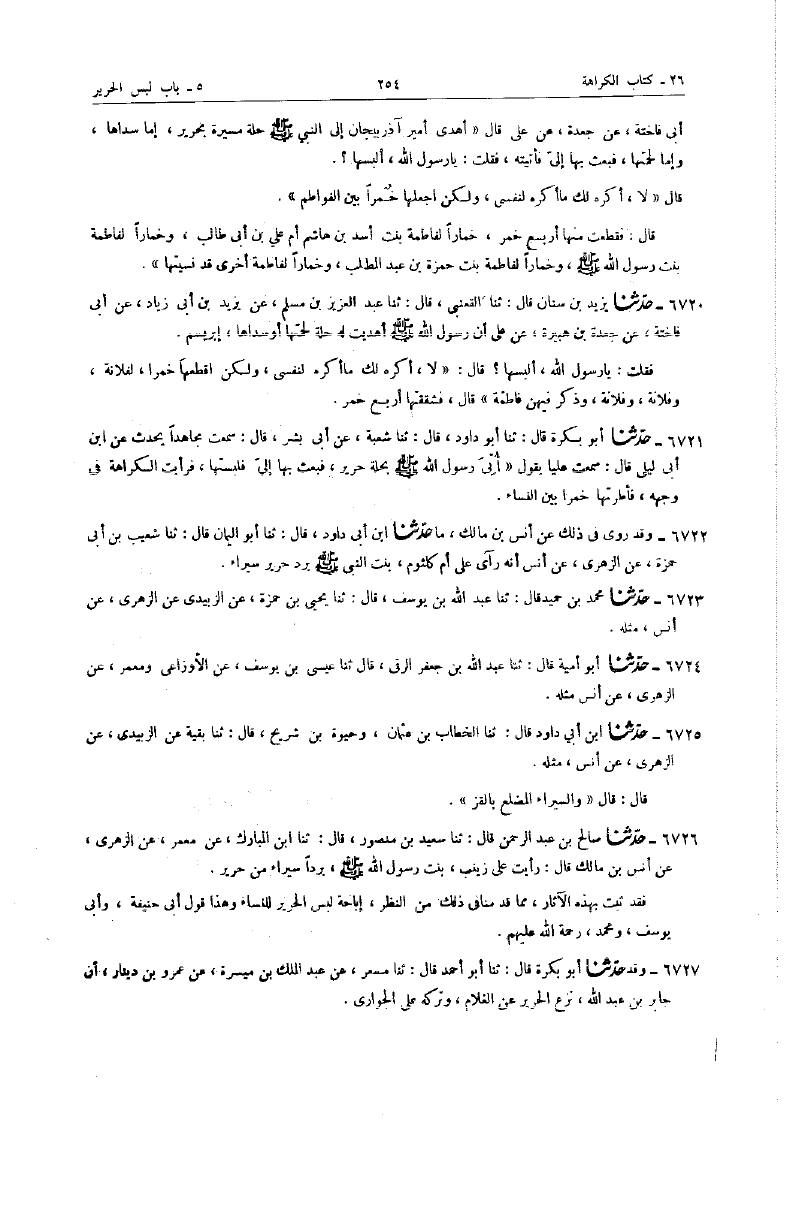 ٢٦ - كتاب الكراهة ٢٥٤ ٥ - باب لبس الحرير
أبى فاختة ، عن جعدة ، عن على قال « أهدى أمير آذربيجان إلى النبي ﷺ حلة مسيرة بحرير ، إما سداها ،
وإما لحمتها ، فبعث بها إلىّ فأتيته ، فقلت : يارسول الله ، ألبسها ؟ .
قال « لا ، أكره لك ماأكره لنفسى ، ولكن اجعلها خُمراً بين الفواطم » .
قال : فقطعت منها أربع خمر ، خماراً لفاطمة بنت أسد بن هاشم أم علي بن أبى طالب ، وخماراً لفاطمة
بنت رسول الله ﷺ ، وخماراً لفاطمة بنت حمزة بن عبد المطلب ، وخماراً لفاطمة أخرى قد نسيتها » .
٦٧٢٠ - حدّثنا يزيد بن سنان قال : ثنا القعنبى ، قال : ثنا عبد العزيز بن مسلم ، عن يزيد بن أبى زياد ، عن أبى
فاختة ، عن جعدة بن هبيرة ، عن على أن رسول الله ﷺ أهديت له حلة لحمتها أوسداها ، إبريسم .
فقلت : يارسول الله ، ألبسها ؟ قال : « لا ، أكره لك ماأكره لنفسى ، ولكن اقطعها خمرا ، لفلانة ،
وفلانة ، وفلانة ، وذكر فيهن فاطمة » قال ، فشققتها أربع خمر .
٦٧٢١ - حدّثنا أبو بكرة قال : ثنا أبو داود ، قال : ثنا شعبة ، عن أبى بشر ، قال : سمعت مجاهداً يحدث عن ابن
أبى ليلى قال : سمعت عليا يقول « أُتِىَ رسول الله ﷺ بحلة حرير ، فبعث بها إلىّ فلبستها ، فرأيت الكراهة فى
وجهه ، فأطرتها خمرا بين النساء .
٦٧٢٢ - وقد روى فى ذلك عن أنس بن مالك ، ما حدّثنا ابن أبى داود ، قال : ثنا أبو اليمان قال : ثنا شعيب بن أبى
حمزة ، عن الزهرى ، عن أنس أنه رآى على أم كلثوم ، بنت النبي ﷺ برد حرير سيراء .
٦٧٢٣ - حدّثنا محمد بن حميدقال : ثنا عبد الله بن يوسف ، قال : ثنا يحيى بن حمزة ، عن الزبيدى عن الزهرى ، عن
أنس ، مثله .
٦٧٢٤ - حدّثنا أبو أمية قال : ثنا عبد الله بن جعفر الرقى ، قال ثنا عيسى بن يوسف ، عن الأوزاعى ومعمر ، عن
الزهرى ، عن أنس مثله .
٦٧٢٥ - حدّثنا ابن أبي داود قال : ثنا الخطاب بن عثمان ، وحيوة بن شريح ، قال : ثنا بقية عن الزبيدى ، عن
الزهرى ، عن أنس ، مثله .
قال : قال « والسيراء المضلع بالقز » .
٦٧٢٦ - حدّثنا صالح بن عبد الرحمن قال : ثنا سعيد بن منصور ، قال : ثنا ابن المبارك ، عن معمر ، عن الزهرى ،
عن أنس بن مالك قال : رأيت على زينب ، بنت رسول الله ﷺ ، برداً سيراء من حرير .
فقد ثبت بهذه الآثار ، مما قد منافى ذلك من النظر ، إباحة لبس الحرير للنساء وهذا قول أبى حنيفة ، وأبى
يوسف ، ومحمد ، رحمة الله عليهم .
٦٧٢٧ - وقد حدّثنا أبو بكرة قال : ثنا أبو أحمد قال : ثنا مسعر ، عن عبد الملك بن ميسرة ، عن عمرو بن دينار ، أن
جابر بن عبد الله ، نزع الحرير عن الغلام ، وتركه على الجوارى .